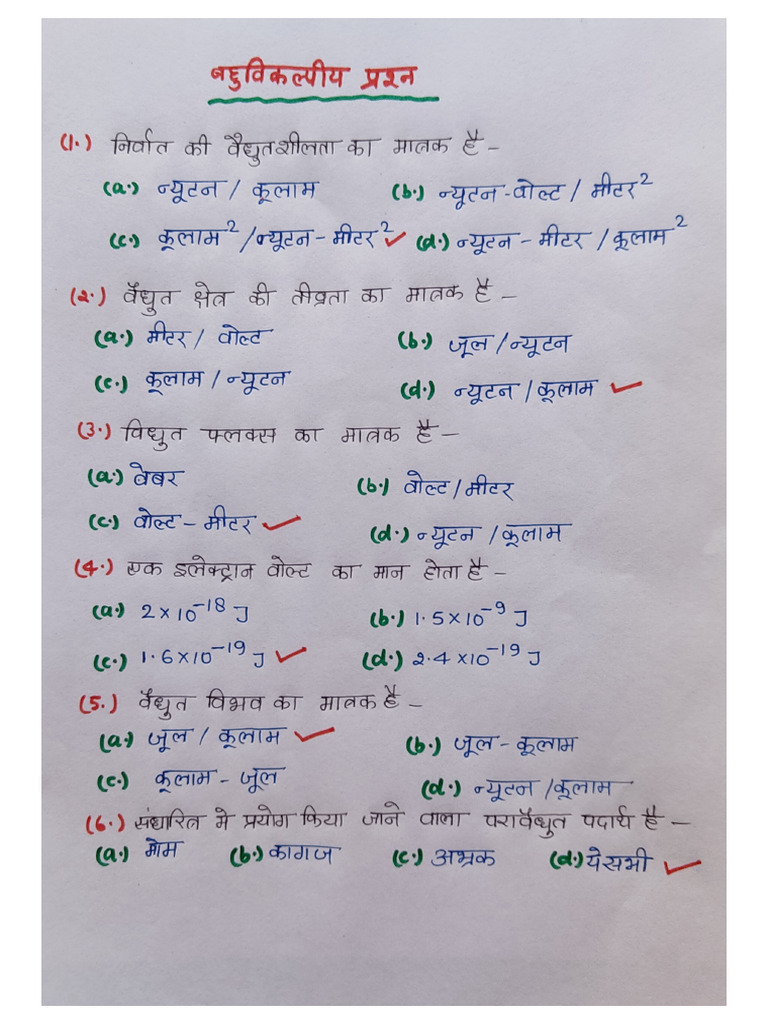 बहुविकल्पीय प्रश्न
(1.) निर्वात की वैद्युतशीलता का मात्रक है -
(a.) न्यूटन / कूलाम (b.) न्यूटन-वोल्ट / मीटर²
(c.) कूलाम² / न्यूटन - मीटर² ✓ (d.) न्यूटन - मीटर / कूलाम²
(2.) वैद्युत क्षेत्र की तीव्रता का मात्रक है -
(a.) मीटर / वोल्ट (b.) जूल / न्यूटन
(c.) कूलाम / न्यूटन (d.) न्यूटन / कूलाम ✓
(3.) विद्युत फ्लक्स का मात्रक है -
(a.) वेबर (b.) वोल्ट / मीटर
(c.) वोल्ट - मीटर ✓ (d.) न्यूटन / कूलाम
(4.) एक इलेक्ट्रान वोल्ट का मान होता है -
(a.) 2×10⁻¹⁸ J (b.) 1.5×10⁻⁹ J
(c.) 1.6×10⁻¹⁹ J ✓ (d.) 2.4×10⁻¹⁹ J
(5.) वैद्युत विभव का मात्रक है -
(a.) जूल / कूलाम ✓ (b.) जूल - कूलाम
(c.) कूलाम - जूल (d.) न्यूटन / कूलाम
(6.) संधारित्र मे प्रयोग किया जाने वाला परावैद्युत पदार्थ है -
(a.) मोम (b.) कागज (c.) अभ्रक (d.) ये सभी ✓